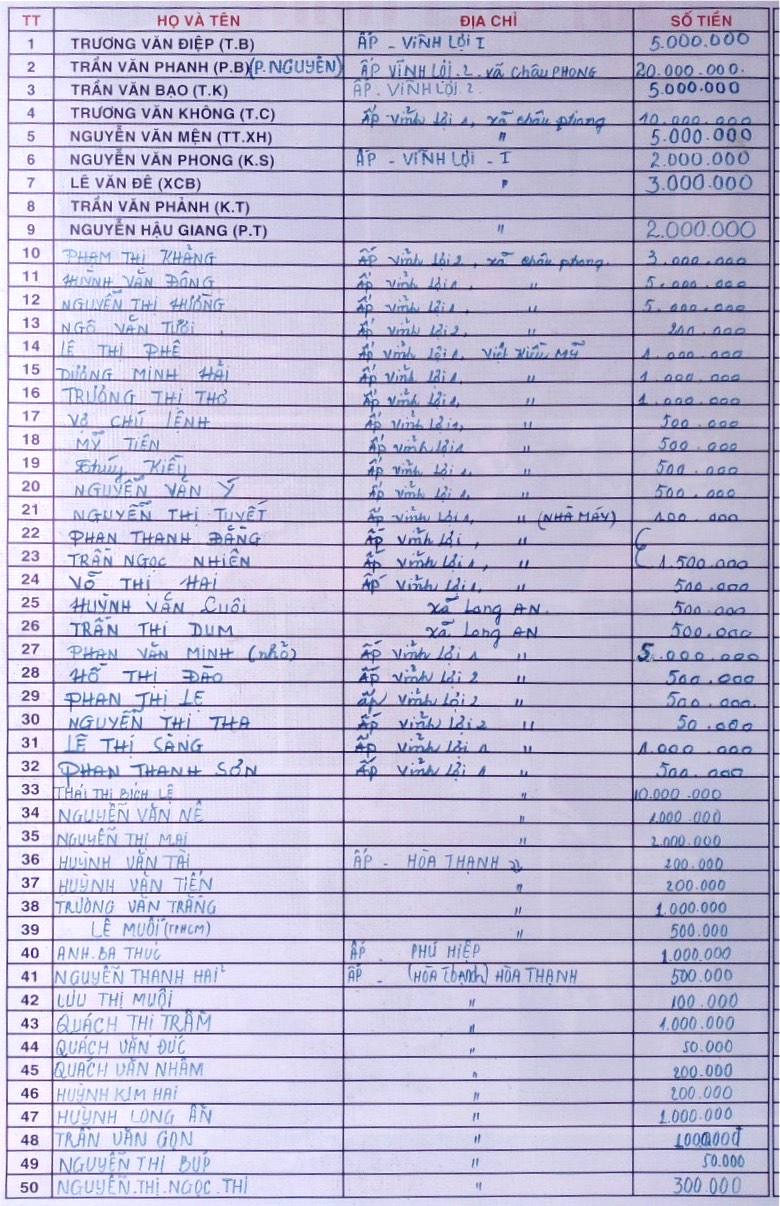 TT HỌ VÀ TÊN ĐỊA CHỈ SỐ TIỀN
1 TRƯƠNG VĂN ĐIỆP (T.B) ẤP - VĨNH LỢI I 5.000.000
2 TRẦN VĂN PHANH (P.B) (P.NGUYÊN) ẤP VĨNH LỘI.2. xã Châu PHONG 20.000.000.
3 TRẦN VĂN BẠO (T.K) ẤP - VĨNH LỘI 2 5.000.000
4 TRƯƠNG VĂN KHÔNG (T.C) ấp vĩnh lợi 1, xã châu phong 10.000.000
5 NGUYỄN VĂN MỆN (TT.XH) " 5.000.000
6 NGUYỄN VĂN PHONG (K.S) ẤP - VĨNH LỢI - I 2.000.000
7 LÊ VĂN ĐÊ (XCB) " 3.000.000
8 TRẦN VĂN PHẢNH (K.T)
9 NGUYỄN HẬU GIANG (P.T) " 2.000.000
10 PHẠM THỊ KHẲNG ẤP Vĩnh Lợi 2, xã châu phong. 3.000.000
11 HUỲNH VĂN ĐÔNG ẤP Vĩnh Lợi 1, " 5.000.000
12 NGUYỄN THỊ HƯỜNG ẤP Vĩnh Lợi 1, " 5.000.000
13 NGÔ VĂN TƯƠI ẤP Vĩnh Lợi 2, " 200.000
14 LÊ THỊ PHÊ ẤP Vĩnh Lợi 1, Việt Kiều Mỹ 1.000.000
15 DƯƠNG MINH HẢI ẤP Vĩnh Lợi 1, " 1.000.000
16 TRƯƠNG THỊ THƠ ẤP Vĩnh Lợi 1, " 1.000.000
17 Vợ CHÚ LỆNH ẤP Vĩnh Lợi 1, " 500.000
18 MỸ TIÊN ẤP Vĩnh Lợi 1 " 500.000
19 Thúy KIỀU ẤP Vĩnh Lợi 1, " 500.000
20 NGUYỄN VĂN Ý ẤP Vĩnh Lợi 1, " 500.000
21 NGUYỄN THỊ TUYẾT ẤP Vĩnh Lợi 1, " (NHÀ MÁY) 100.000
22 PHAN THANH ĐẰNG ẤP Vĩnh Lợi, "
23 TRẦN NGỌC NHIÊN ẤP Vĩnh Lợi 1, " 1.500.000
24 VÕ THỊ HAI ẤP Vĩnh Lợi 1, " 500.000
25 HUỲNH VĂN Cuôi xã Long AN. 500.000
26 TRẦN THỊ DUM xã Long AN 500.000
27 PHAN VĂN MINH (nhỏ) ẤP Vĩnh Lợi 1 " 5.000.000
28 HỒ THỊ ĐÀO ẤP Vĩnh Lợi 2 " 500.000
29 PHAN THỊ LẸ ấp Vĩnh Lợi 2 " 500.000.
30 NGUYỄN THỊ THA ẤP Vĩnh Lợi 2 " 50.000
31 LÊ THỊ SÀNG ẤP Vĩnh Lợi 1 " 1.000.000
32 PHAN THANH SƠN ẤP Vĩnh Lợi 1 " 500.000
33 THÁI THỊ BÍCH LỆ " 10.000.000
34 NGUYỄN VĂN NÊ " 1.000.000
35 NGUYỄN THỊ MAI " 2.000.000
36 HUỲNH VĂN TÀI ẤP - HÒA THẠNH 200.000
37 HUỲNH VĂN TIẾN " 200.000
38 TRƯƠNG VĂN TRĂNG " 1.000.000
39 LÊ MUÔI (TPHCM) " 500.000
40 ANH.BA THỨC ẤP - PHÚ HIỆP 1.000.000
41 NGUYỄN THANH HAI² ẤP - (HÒA Thạnh) HÒA THẠNH 500.000
42 LƯU THỊ MUỘI " 100.000
43 QUÁCH THỊ TRẦM " 1.000.000
44 QUÁCH VĂN ĐỨC " 50.000
45 QUÁCH VĂN NHÂM " 200.000
46 HUỲNH KIM HAI " 200.000
47 HUỲNH LONG ẨN " 1.000.000
48 TRẦN VĂN GỌN "
49 NGUYỄN THỊ BÚP " 50.000
50 NGUYỄN.THỊ.NGỌC.THI " 300.000